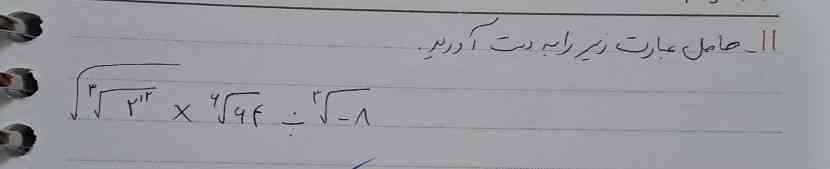 ۱۱_ حاصل عبارت زیر را به دست آورید.
√(∛(۲^۱۲)) × ⁶√۶۴ ÷ ∛-۸